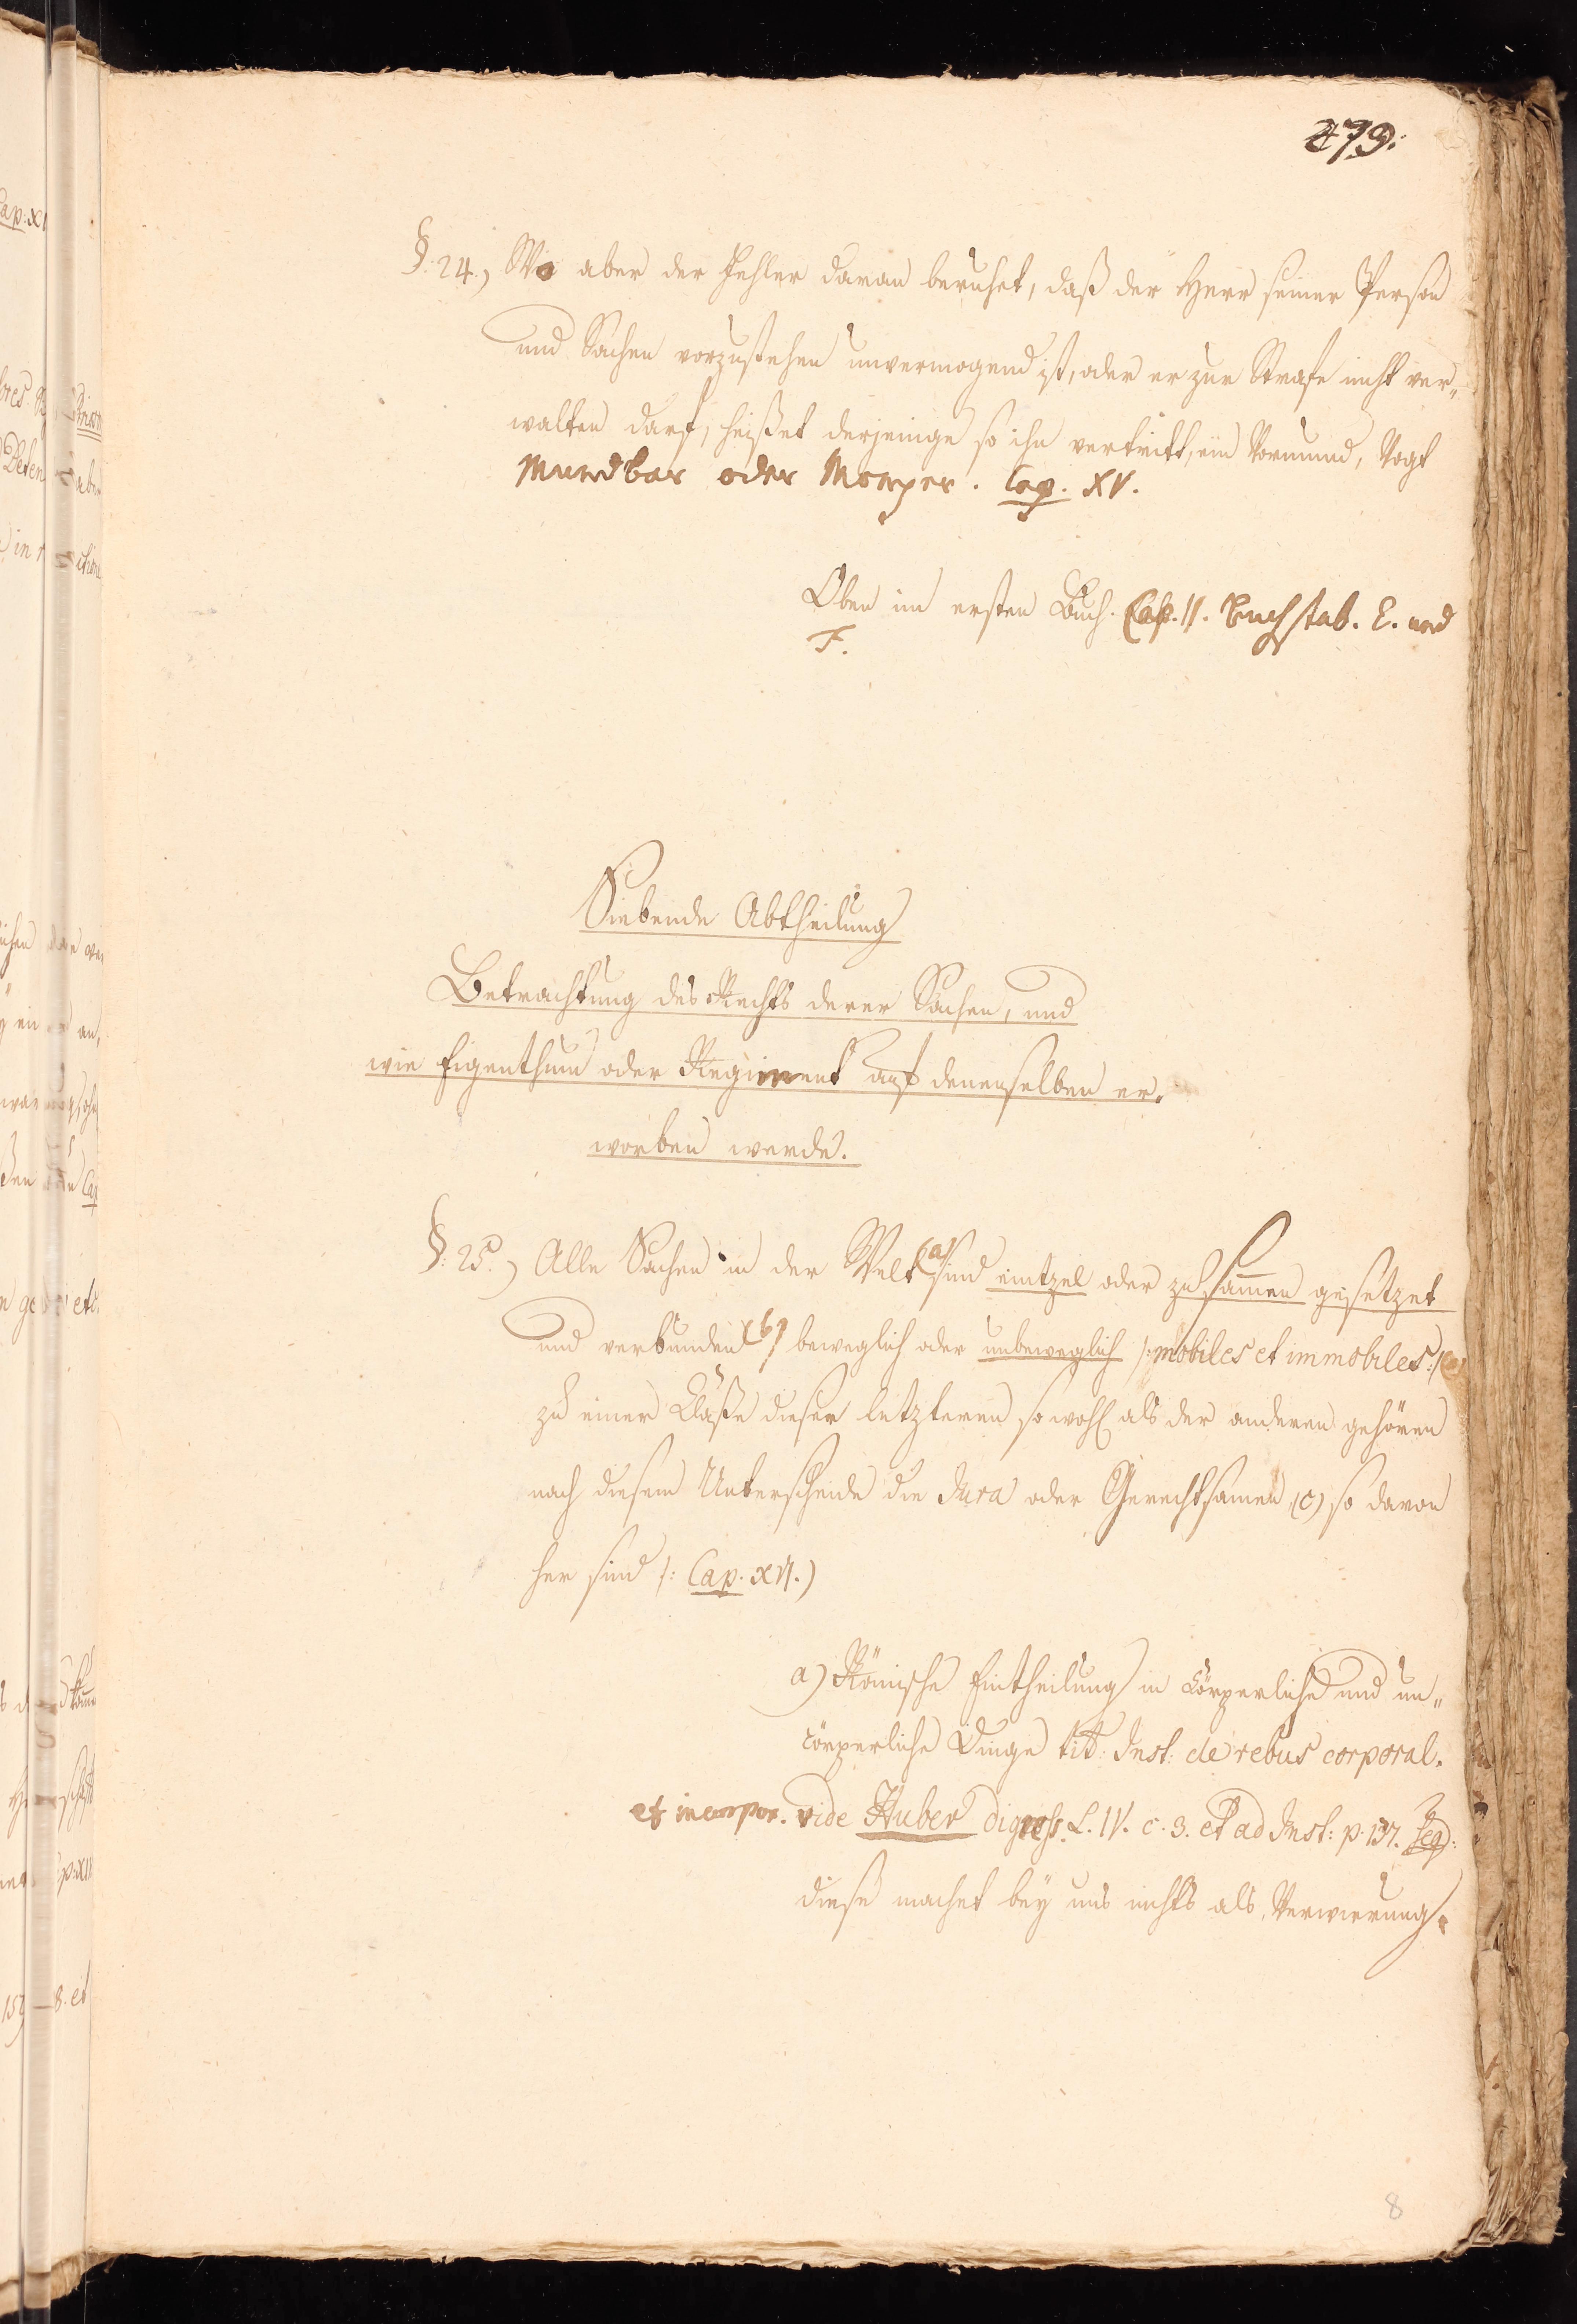 279.
§. 24.) Wo aber der Fehler daran beruhet, daß der Herr seiner Person
und Sachen vorzustehen unvermogend ist, oder er zur Strafe nicht ver„
walten darf, heißet derjenige so ihn vertritt, ein Vormund, Vogt
Mundbar oder Momper. Cap. XV.
Oben im ersten Buch. Cap. II. Buchstab. E. und
F.
Siebende Abtheilung
Betrachtung des Rechts derer Sachen, und
wie Eigenthum oder Regiment auf denenselben er„
worben werde.
§. 25.) Alle Sachen in der Welt (a) sind eintzel oder zusammen gesetzet
und verbunden (b) beweglich oder unbeweglich /: mobiles et immobiles :/
zu einer Claße dieser letzteren so wohl als der anderen gehören
nach diesem Unterscheide die Jura oder Gerechtsamen (c) so davon
her sind /: Cap. XVI.)
a) Römische Eintheilung in Cörperliche und un„
cörperliche Dinge tit: Inst: de rebus corporal.
et incorpor. vide Huber digress. L. IV. c. 3. et ad Inst: p. 137. seq:
diese machet bey uns nichts als Verwirrung.
8